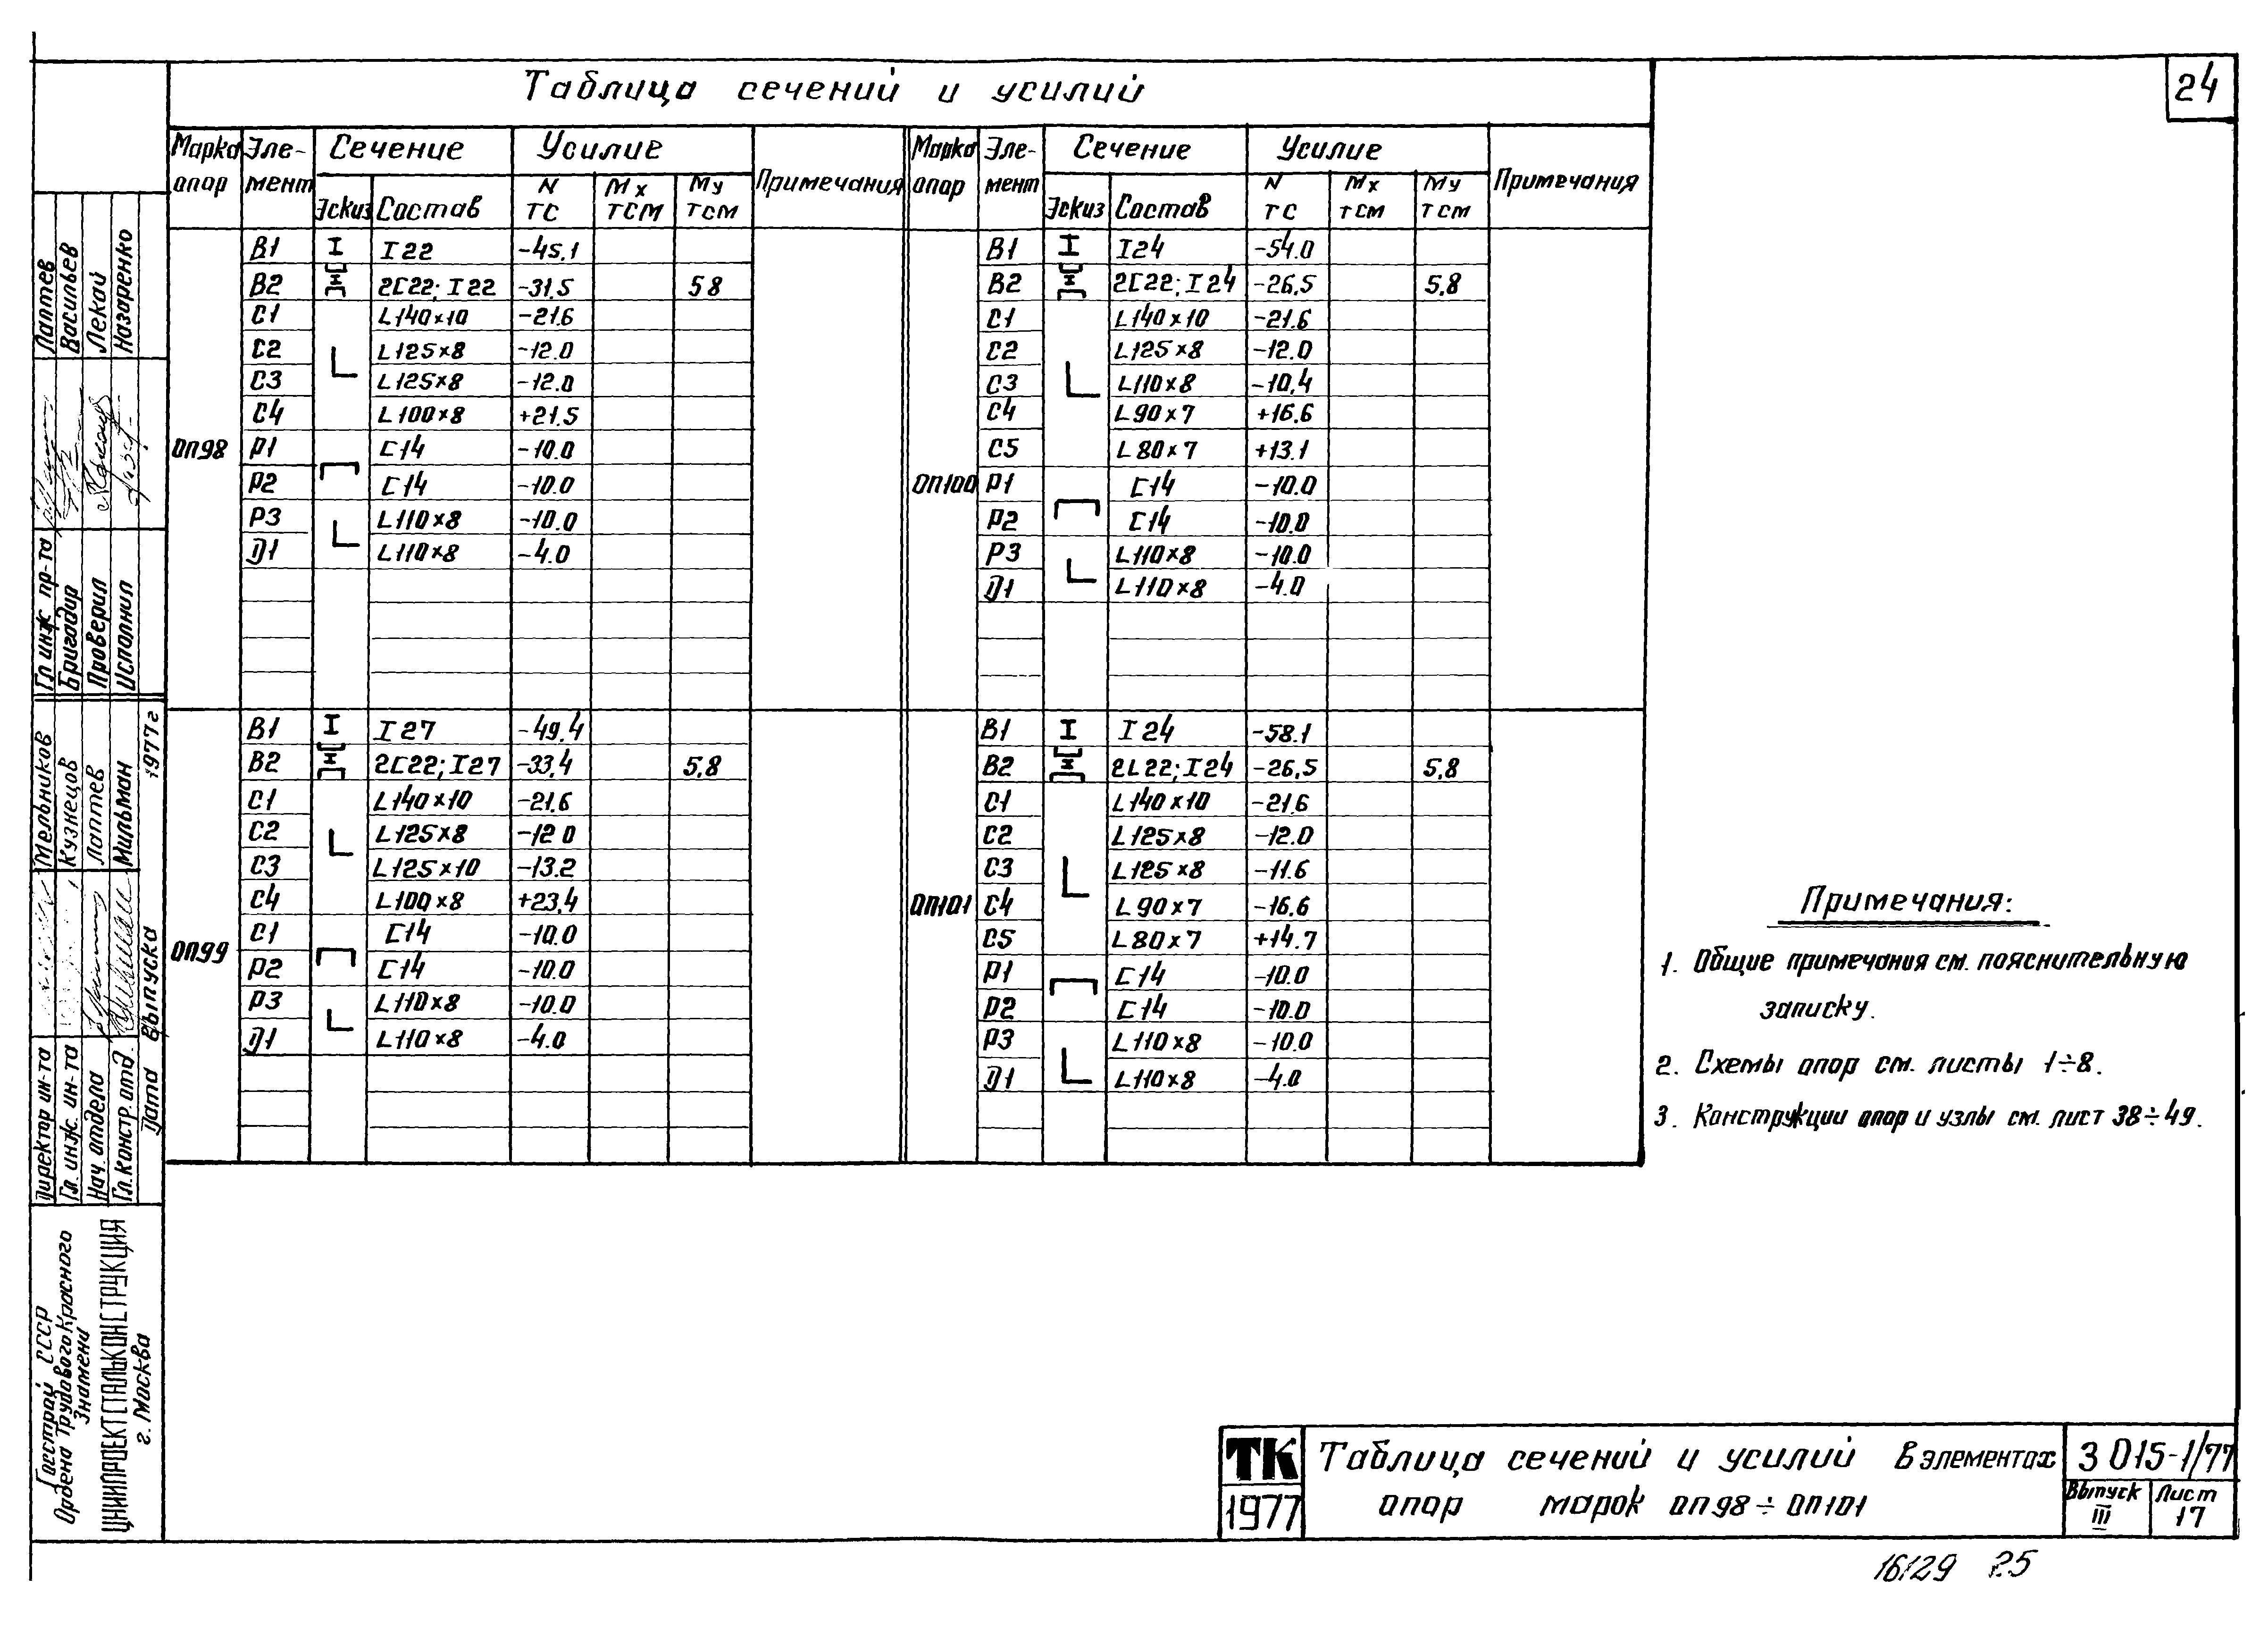 24
Таблица сечений и усилий
Марка опор Эле-мент Сечение Усилие Примечания Марка опор Эле-мент Сечение Усилие Примечания
Эскиз Состав N тс Mx тсм My тсм Эскиз Состав N тс Mx тсм My тсм
оп98
В1 I I22 -45,1
В2 2[22; I22 -31.5 58
С1 L140×10 -21.6
С2 L125×8 -12.0
С3 L125×8 -12.0
С4 L100×8 +21.5
Р1 [14 -10.0
Р2 [14 -10.0
Р3 L110×8 -10.0
Д1 L110×8 -4.0
оп100
В1 I I24 -54.0
В2 2[22; I24 -26,5 5,8
С1 L140×10 -21.6
С2 L125×8 -12.0
С3 L110×8 -10,4
С4 L90×7 +16.6
С5 L80×7 +13.1
Р1 [14 -10.0
Р2 [14 -10.0
Р3 L110×8 -10.0
Д1 L110×8 -4.0
оп99
В1 I I27 -49.4
В2 2[22; I27 -33,4 5,8
С1 L140×10 -21.6
С2 L125×8 -12 0
С3 L125×10 -13.2
С4 L100×8 +23,4
С1 [14 -10.0
Р2 [14 -10.0
Р3 L110×8 -10.0
Д1 L110×8 -4.0
оп101
В1 I I24 -58.1
В2 2L22; I24 -26,5 5,8
С1 L140×10 -21,6
С2 L125×8 -12.0
С3 L125×8 -11.6
С4 L90×7 -16.6
С5 L80×7 +14.7
Р1 [14 -10.0
Р2 [14 -10.0
Р3 L110×8 -10.0
Д1 L110×8 -4.0
Примечания:
1. Общие примечания см. пояснительную
записку.
2. Схемы опор см. листы 1÷8.
3. Конструкции опор и узлы см. лист 38÷49.
Гл инж пр-та Лаптев
Бригадир Васильев
Проверил Лекай
Исполнил Назаренко
Директор ин-та Мельников
Гл. инж. ин-та Кузнецов
Нач. отдела Лаптев
Гл. констр. отд. Мильман
Дата выпуска 1977г
Госстрой СССР
Ордена Трудового Красного
Знамени
ЦНИИПРОЕКТСТАЛЬКОНСТРУКЦИЯ
г. Москва
ТК Таблица сечений и усилий в элементах 3 015-1/77
1977 опор марок оп98÷оп101 Выпуск III Лист 17
16129 25